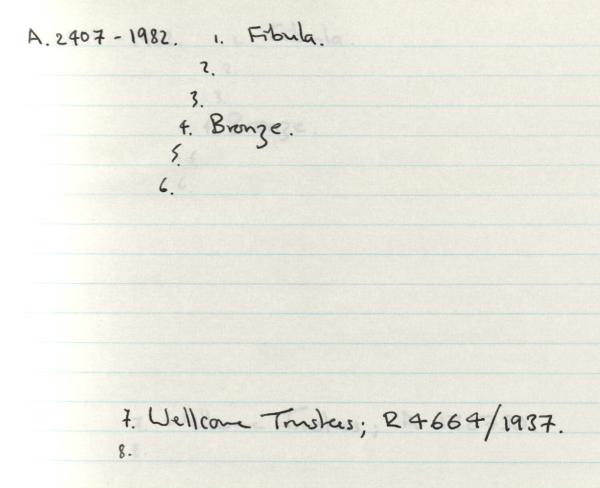 A. 2407 - 1982. 1. Fibula.
2.
3.
4. Bronze.
5.
6.
7. Wellcome Trustees; R4664/1937.
8.